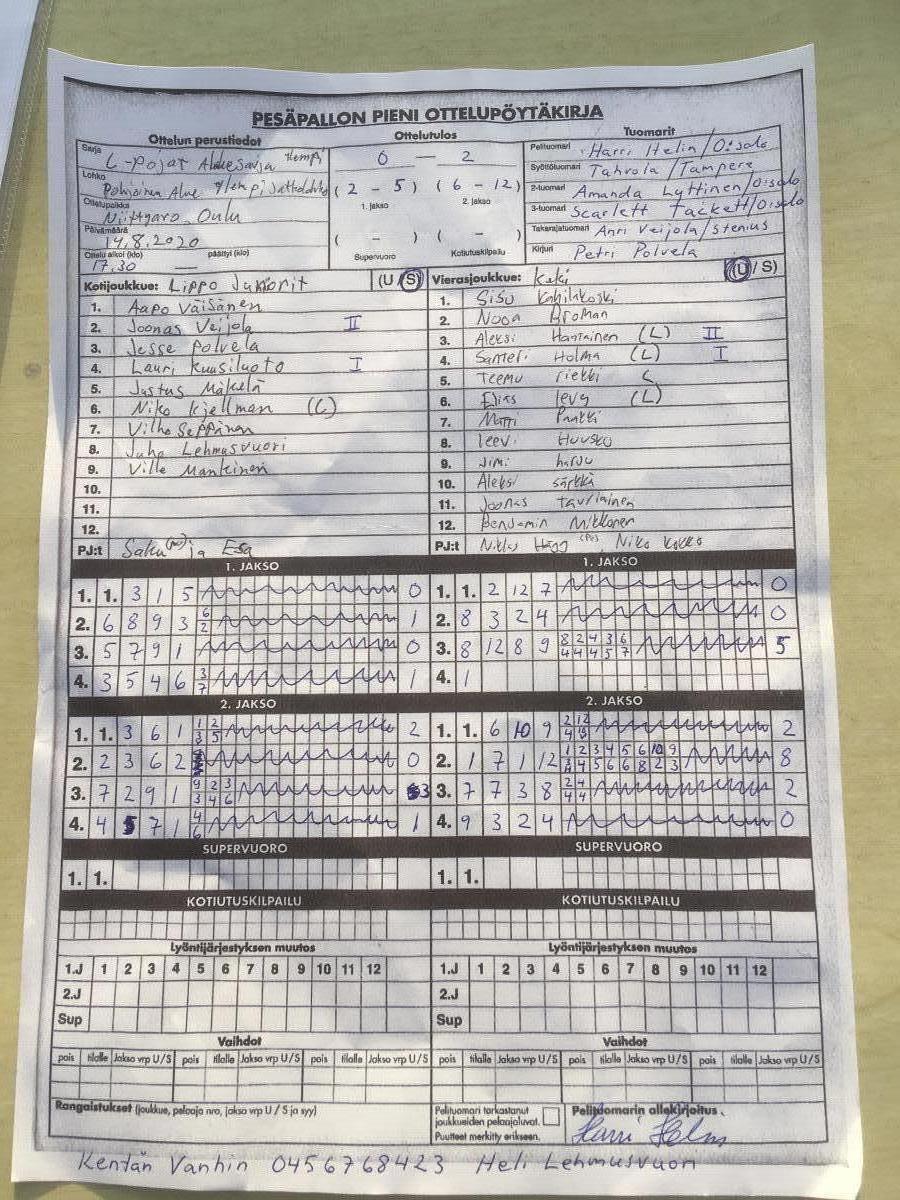 PESÄPALLON PIENI OTTELUPÖYTÄKIRJA
Ottelun perustiedot
Sarja C-pojat Aluesarja
Lohko Pohjoinen Alue
Ottelupaikka Oulu
Päivämäärä 14.8.2020
Ottelu alkoi (klo) päättyi (klo)
17.30 —
Ottelutulos
0 — 2
(2 - 5) (6 - 12)
1. jakso 2. jakso
( - ) ( - )
Supervuoro Kotiutuskilpailu
Tuomarit
Pelituomari Harri Helin/O:salo
Syöttötuomari Tahvola/Tampere
2-tuomari Amanda Lyttinen/O:salo
3-tuomari Scarlett Tackett/O:salo
Takarajatuomari Anri Veijola/Stenius
Kirjuri Petri Polvela
Kotijoukkue: Lippo Juniorit (U/S)
1. Aapo Väisänen
2. Joonas Veijola II
3. Jesse Polvela
4. Lauri Kuusiluoto I
5. Justus Mäkelä
6. Niko Kjellman (C)
7. Vilho Seppänen
8. Juho Lehmusvuori
9. Ville Mankinen
10.
11.
12.
PJ:t Saku ja Esa
Vierasjoukkue: (U/S)
1. Sisu
2. Nooa Broman
3. Aleksi (L) II
4. Santeri Holma (L) I
5. Teemu C
6. Elias (L)
7. Matti
8. Leevi Huusko
9. Jimi Harju
10. Aleksi Särkkä
11. Joonas Tauriainen
12. Benjamin Mikkonen
PJ:t Niko
1. JAKSO
1. 1. 3 1 5 0
2. 6 8 9 3 6 2 1
3. 5 7 9 1 0
4. 3 5 4 6 3 7 1
1. JAKSO
1. 1. 2 12 7 0
2. 8 3 2 4 0
3. 8 12 8 9 8 2 4 3 6 4 4 4 5 7 5
4. 1
2. JAKSO
1. 1. 3 6 1 2
2. 2 3 6 2 0
3. 7 2 9 1 9 2 3 3 4 6 3
4. 4 5 7 1 4 6 1
2. JAKSO
1. 1. 6 10 9 2
2. 1 7 1 12 8
3. 7 7 3 8 2 4 4 4 2
4. 9 3 2 4 0
SUPERVUORO
1. 1.
SUPERVUORO
1. 1.
KOTIUTUSKILPAILU
KOTIUTUSKILPAILU
Lyöntijärjestyksen muutos
1.J 1 2 3 4 5 6 7 8 9 10 11 12
2.J
Sup
Lyöntijärjestyksen muutos
1.J 1 2 3 4 5 6 7 8 9 10 11 12
2.J
Sup
Vaihdot
pois tilalle Jakso vrp U/S pois tilalle Jakso vrp U/S pois tilalle Jakso vrp U/S
Vaihdot
pois tilalle Jakso vrp U/S pois tilalle Jakso vrp U/S pois tilalle Jakso vrp U/S
Rangaistukset (joukkue, pelaaja nro, jakso vrp U / S ja syy)
Pelituomari tarkastanut
joukkueiden pelaajaluvat.
Puutteet merkitty erikseen.
Pelituomarin allekirjoitus
Harri Helin
Kentän Vanhin 0456768423 Heli Lehmusvuori